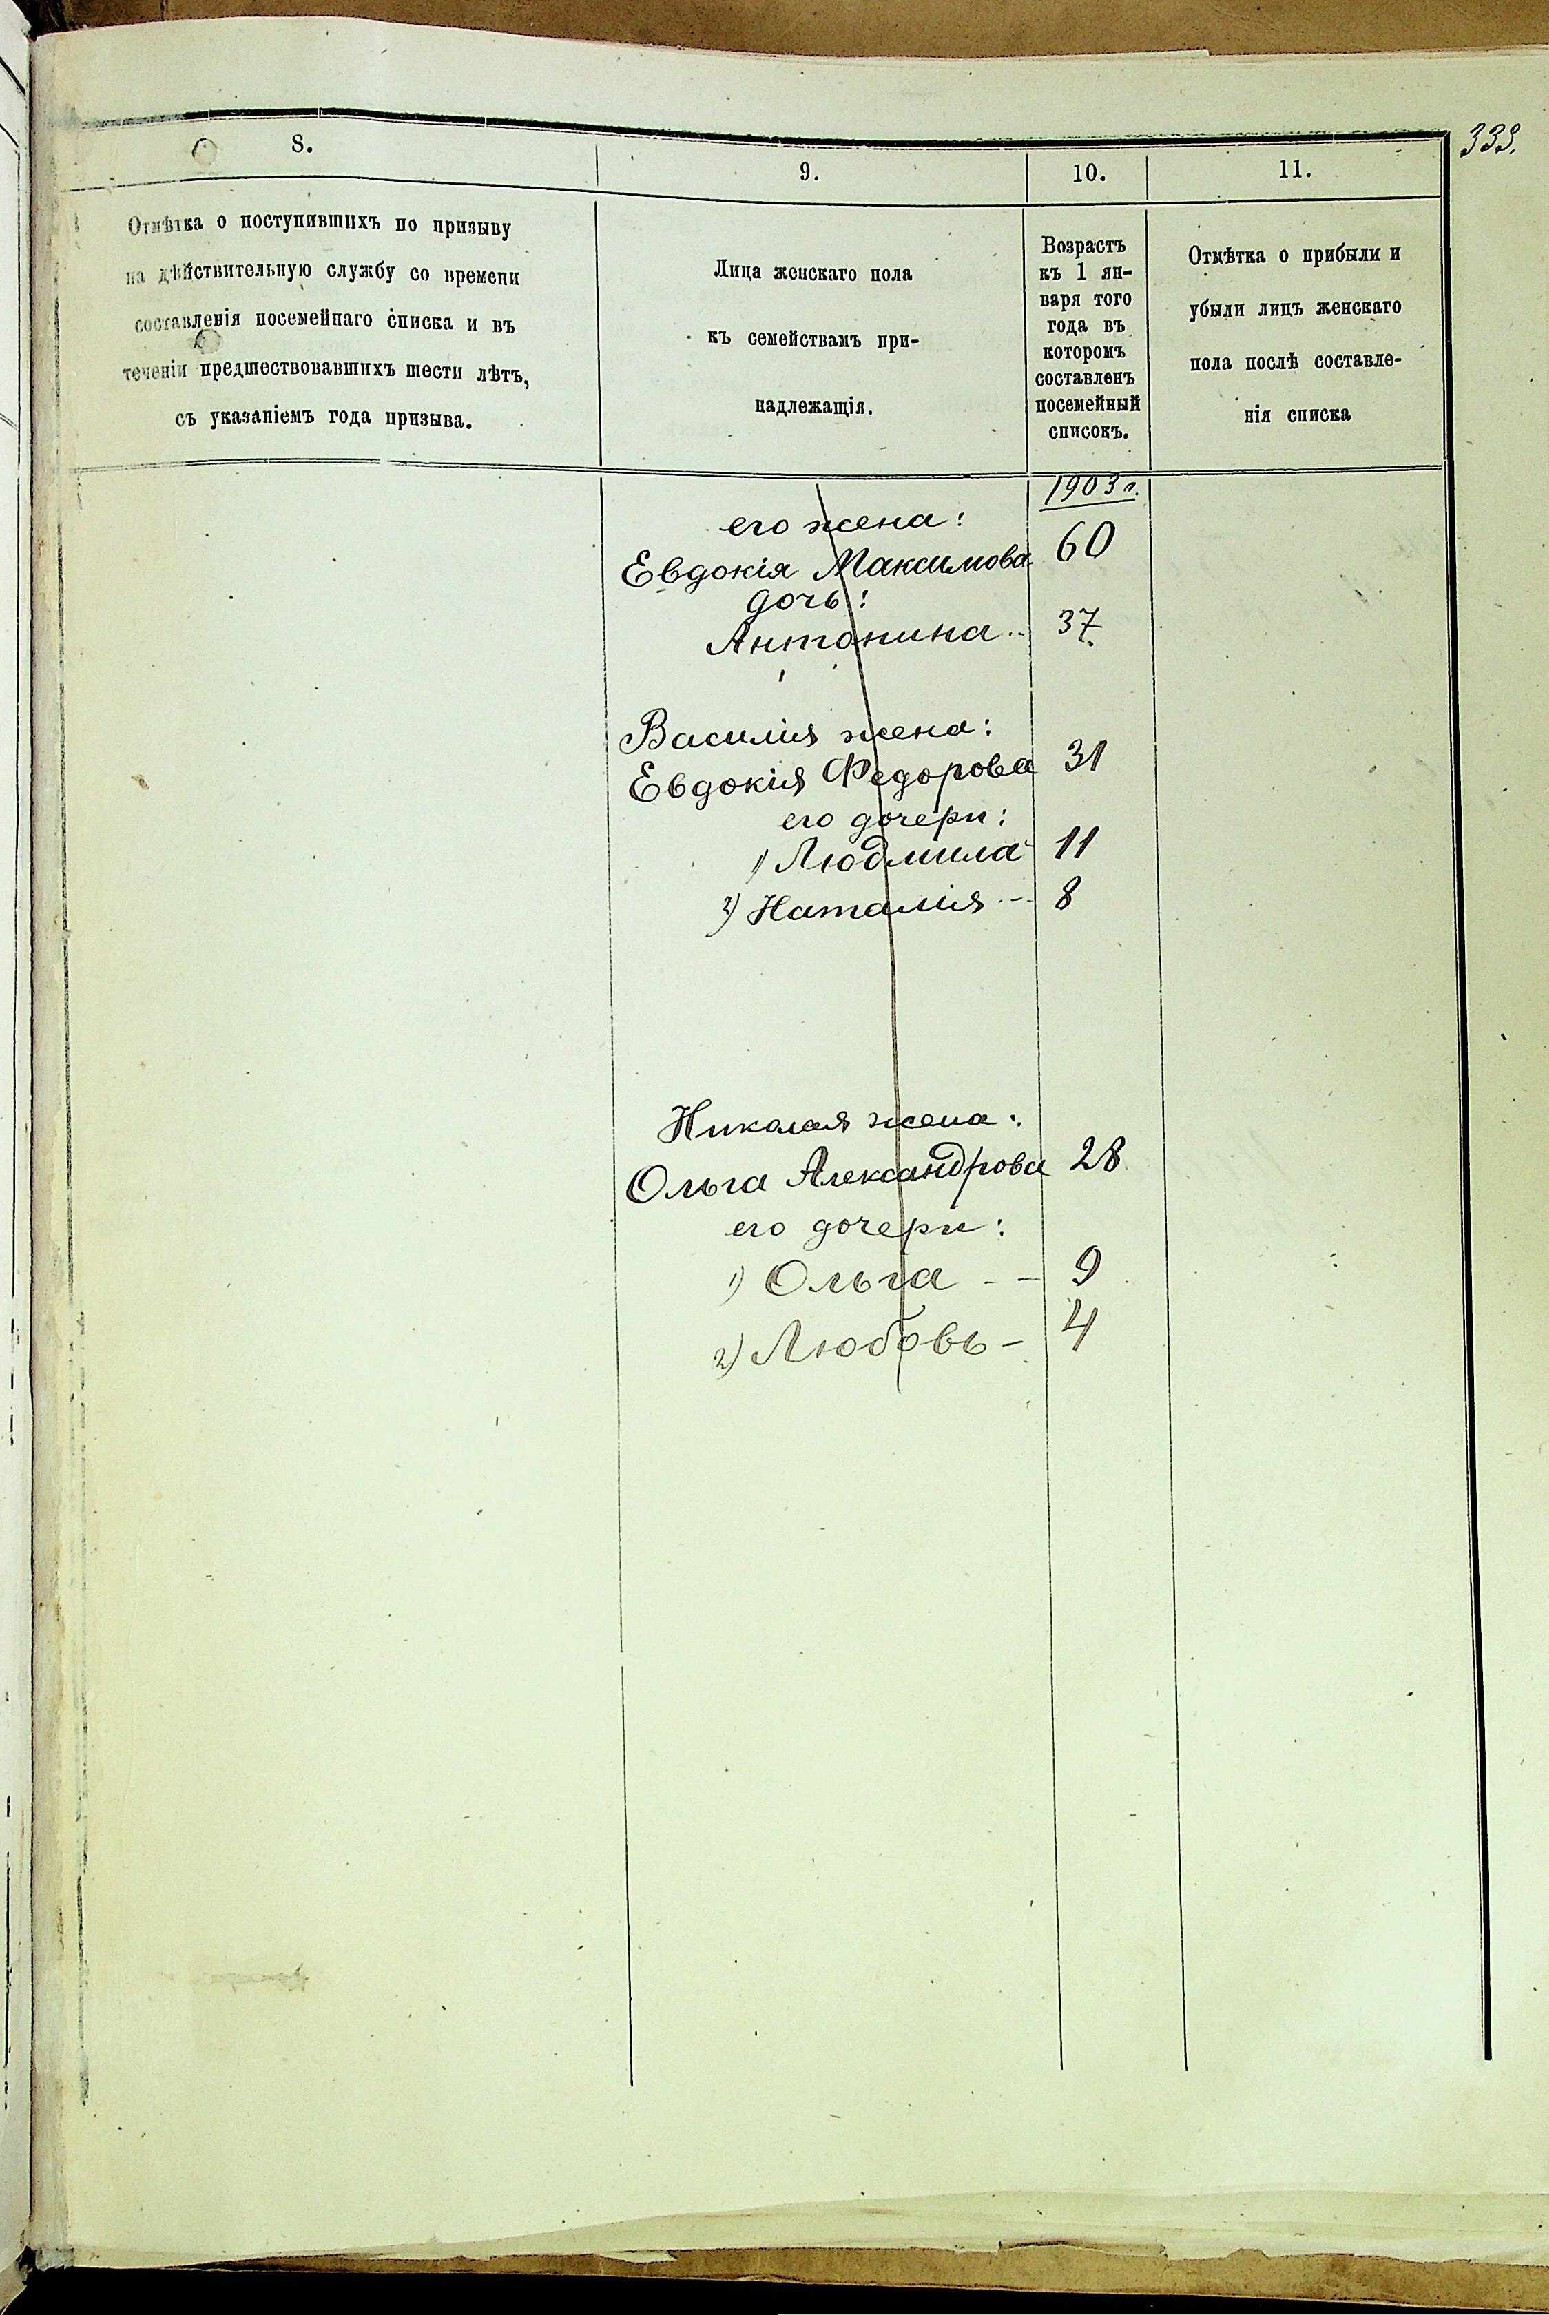 333.
8.
9.
10.
11.
Отмѣтка о поступившихъ по призыву
на дѣйствительную службу со времени
составленія посемейнаго списка и въ
теченіи предшествовавшихъ шести лѣтъ,
съ указаніемъ года призыва.
Лица женскаго пола
къ семействамъ при-
надлежащія.
Возрастъ
къ 1 ян-
варя того
года въ
которомъ
составленъ
посемейный
списокъ.
Отмѣтка о прибыли и
убыли лицъ женскаго
пола послѣ составле-
нія списка
1903 г.
его жена:
Евдокія Максимова 60
дочь:
Антонина 37
Василія жена:
Евдокія Федорова 31
его дочери:
1) Людмила 11
2) Наталія 8
Николая жена:
Ольга Александрова 28
его дочери:
1) Ольга - - 9
2) Любовь - 4